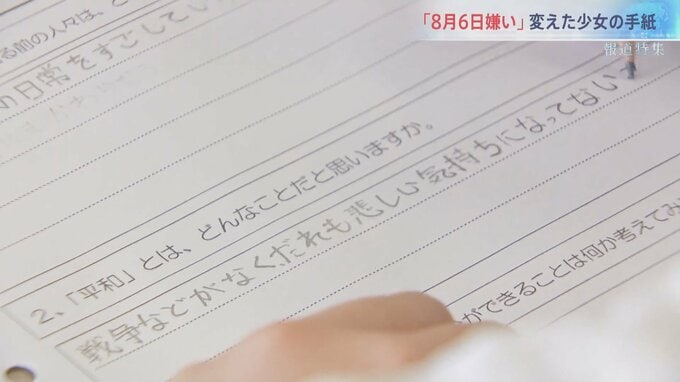 「8月6日嫌い」変えた少女の手紙
報道特集
る前の人々は、ど
の日常をすごしてい
2、「平和」とは、どんなことだと思いますか。
戦争などがなく、だれも悲しい気持ちになってない
ができることは何か考えてみ